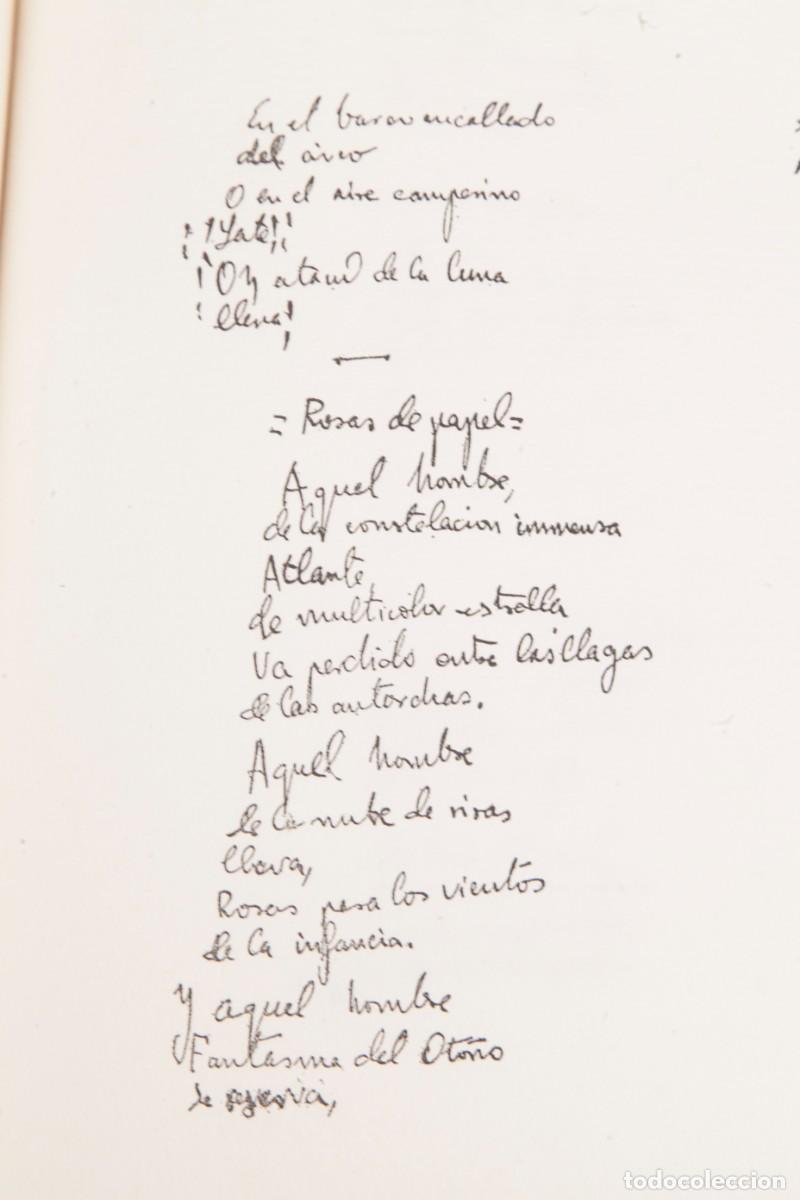 En el barco encallado
del circo
O en el aire campesino
¡¡Late!!
¡Oh ataud de la luna
llena!
= Rosas de papel =
Aquel hombre,
de la constelacion immensa
Atlante,
de multicolor estrella
Va perdido entre las llagas
de las antorchas.
Aquel hombre
de la nube de risas
lleva,
Rosas para los vientos
de la infancia.
Y aquel hombre
Fantasma del Otoño
todocoleccion